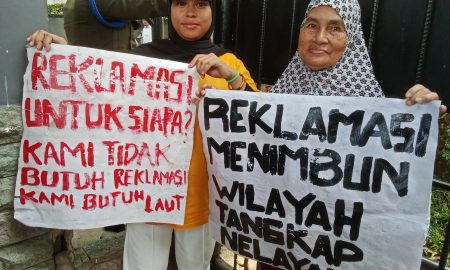 REKLAMASI
UNTUK SIAPA?
KAMI TIDAK
BUTUH REKLAMASI
KAMI BUTUH LAUT
REKLAMASI
MENIMBUN
WILAYAH
TANGKAP
NELAYAN